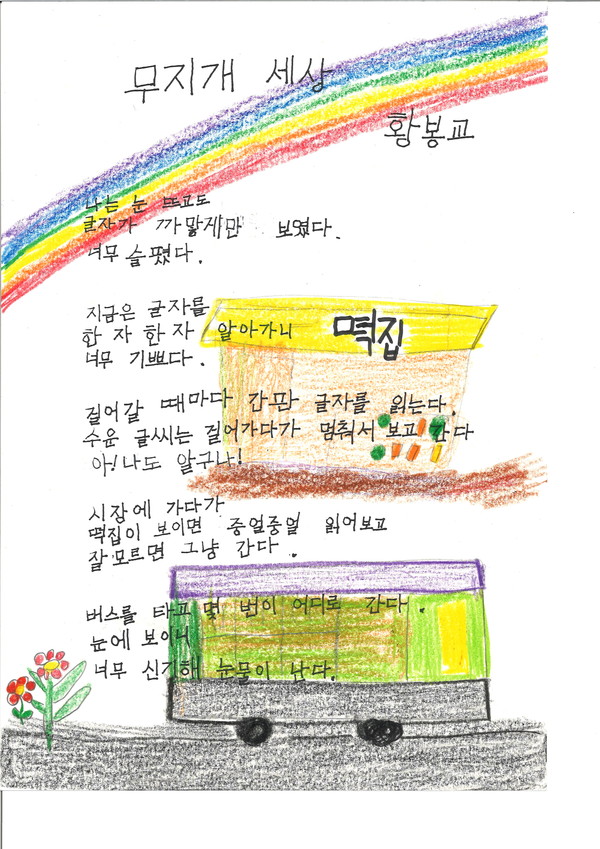 무지개 세상
황봉교
나는 눈 뜨고도
글자가 까맣게만 보였다.
너무 슬펐다.
지금은 글자를
한 자 한 자 알아가니
너무 기쁘다.
떡집
걸어갈 때마다 간판 글자를 읽는다.
수운 글씨는 걸어가다가 멈춰서 보고 간다
아! 나도 알구나!
시장에 가다가
떡집이 보이면 중얼중얼 읽어보고
잘 모르면 그냥 간다.
버스를 타고 몇 번이 어디로 간다.
눈에 보이니
너무 신기해 눈물이 난다.